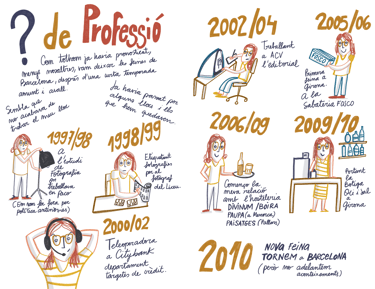 ? de Professió
Com tothom ja havia pronosticat,
menys nosaltres, vam deixar les feines de
Barcelona, després d'una curta temporada
amunt i avall.
Sembla que
no acabarem de
trobar el nostre lloc
Ja havia passat per
alguns llocs i els
que hem quedaran
1997/98
A
l'estudi
de
Fotografia
on
treballava
en Facco
(Em van fer fora per
política antinòvies)
1998/99
Etiquetant
fotografies
per al
fotògraf
del Liceu
2000/02
Teleoperadora
a Citybank
departament
targetes de crèdit.
2002/04
Treballant
a ACV
l'editorial
2005/06
FOSCO
Primera
feina a
Girona.
A la
Sabateria FOSCO
2006/09
Començo la
meva relació
amb l'hosteleria
DIVINUM / BOIRA
PAUPA (a Menorca)
PAISATGES (Pallars)
2009/10
Portant
la
Botiga
Oli i sal
a
Girona.
2010
NOVA FEINA
TORNEM a BARCELONA
(però no adelantem
aconteixements)